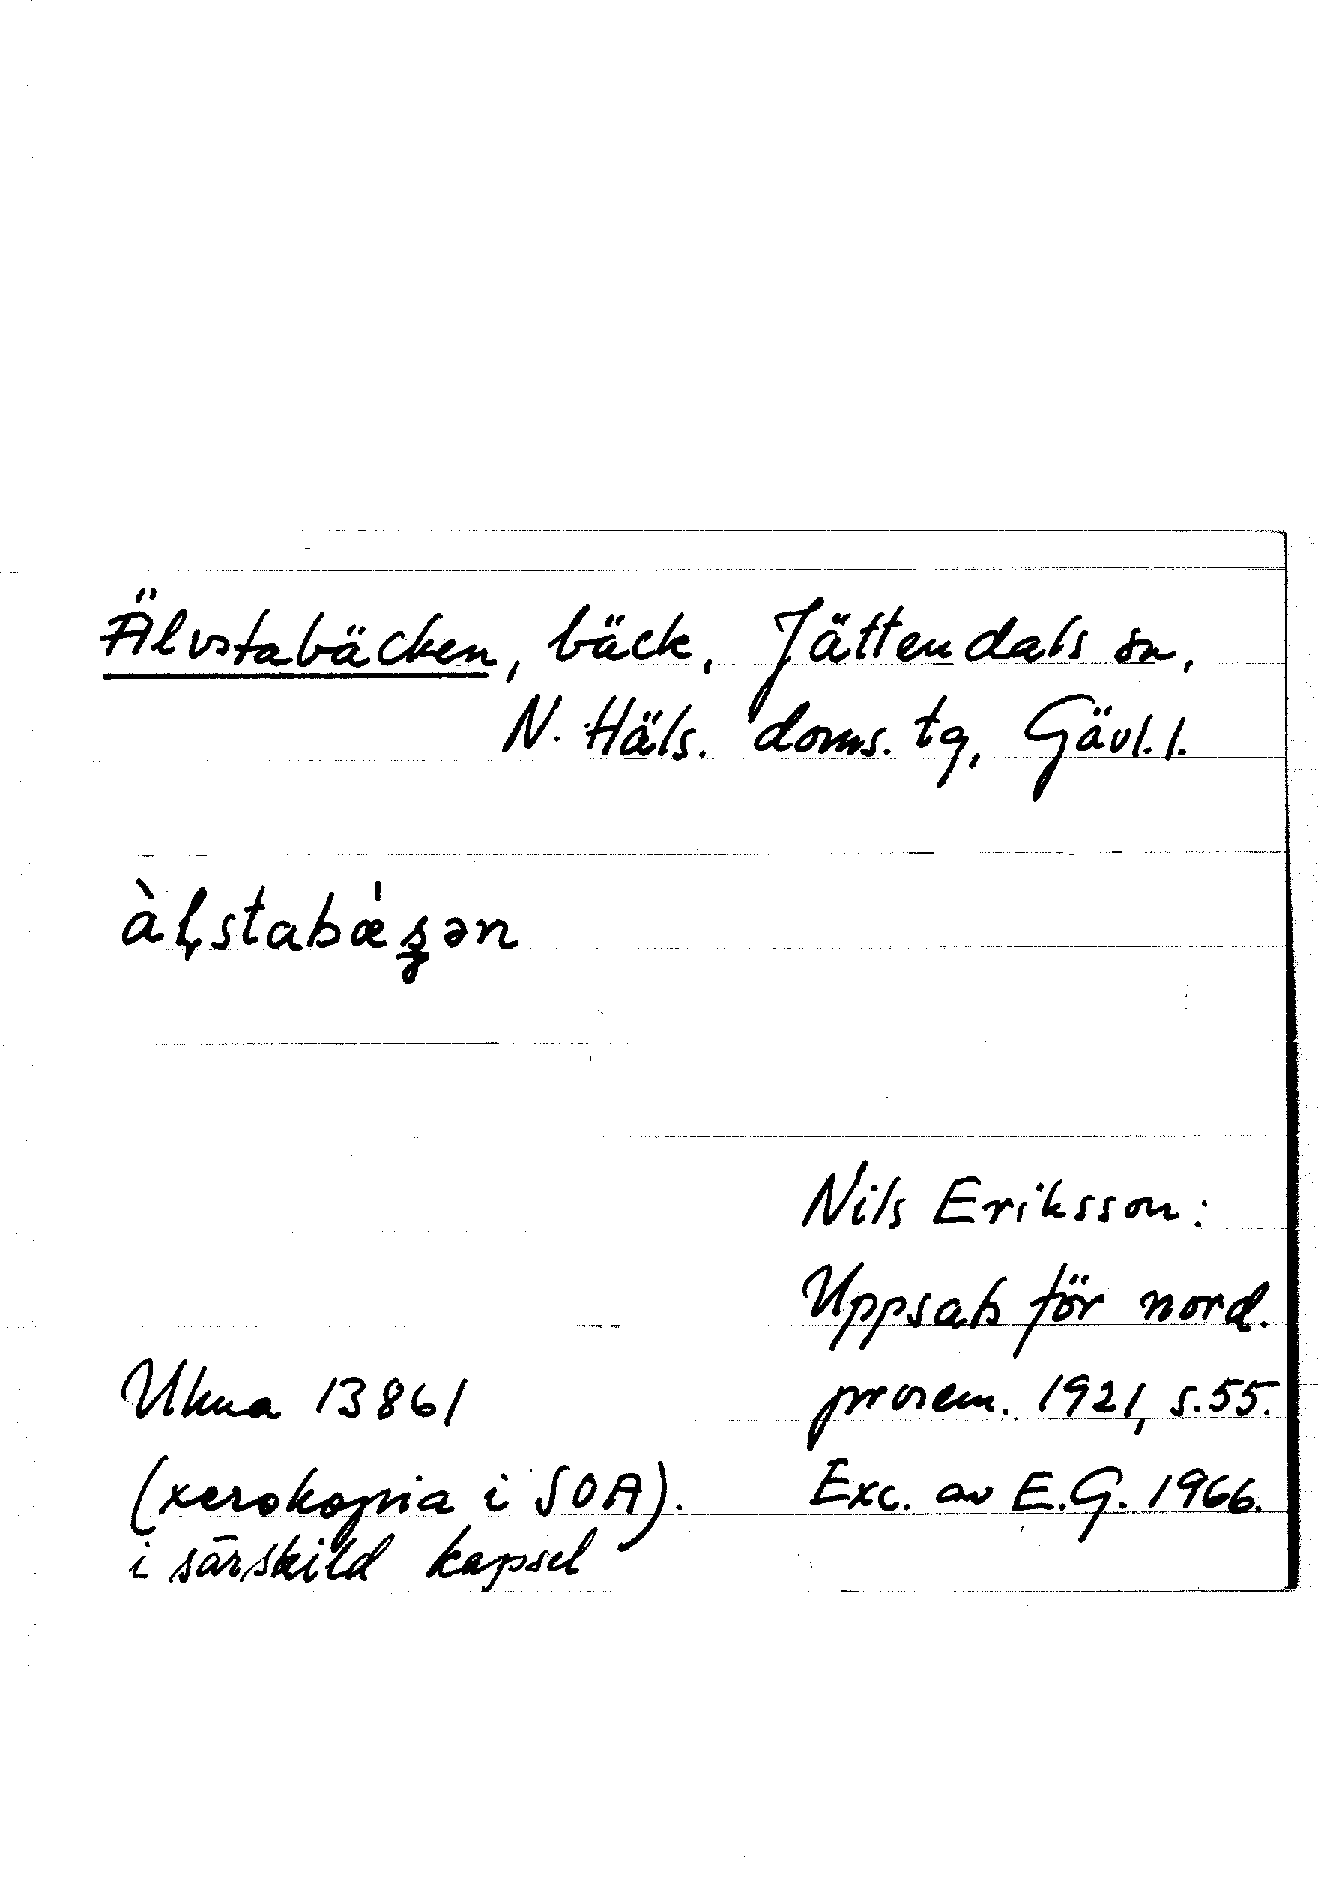 Älvstabäcken, bäck, Jättendals sn,
N. Häls. doms. tg, Gävl. l.
àl̦stabǽʂən
Nils Eriksson:
Uppsats för nord.
prosem. 1921, s. 55.
Exc. av E.G. 1966.
Ukna 13861
(xerokopia i SOA).
i särskild kapsel